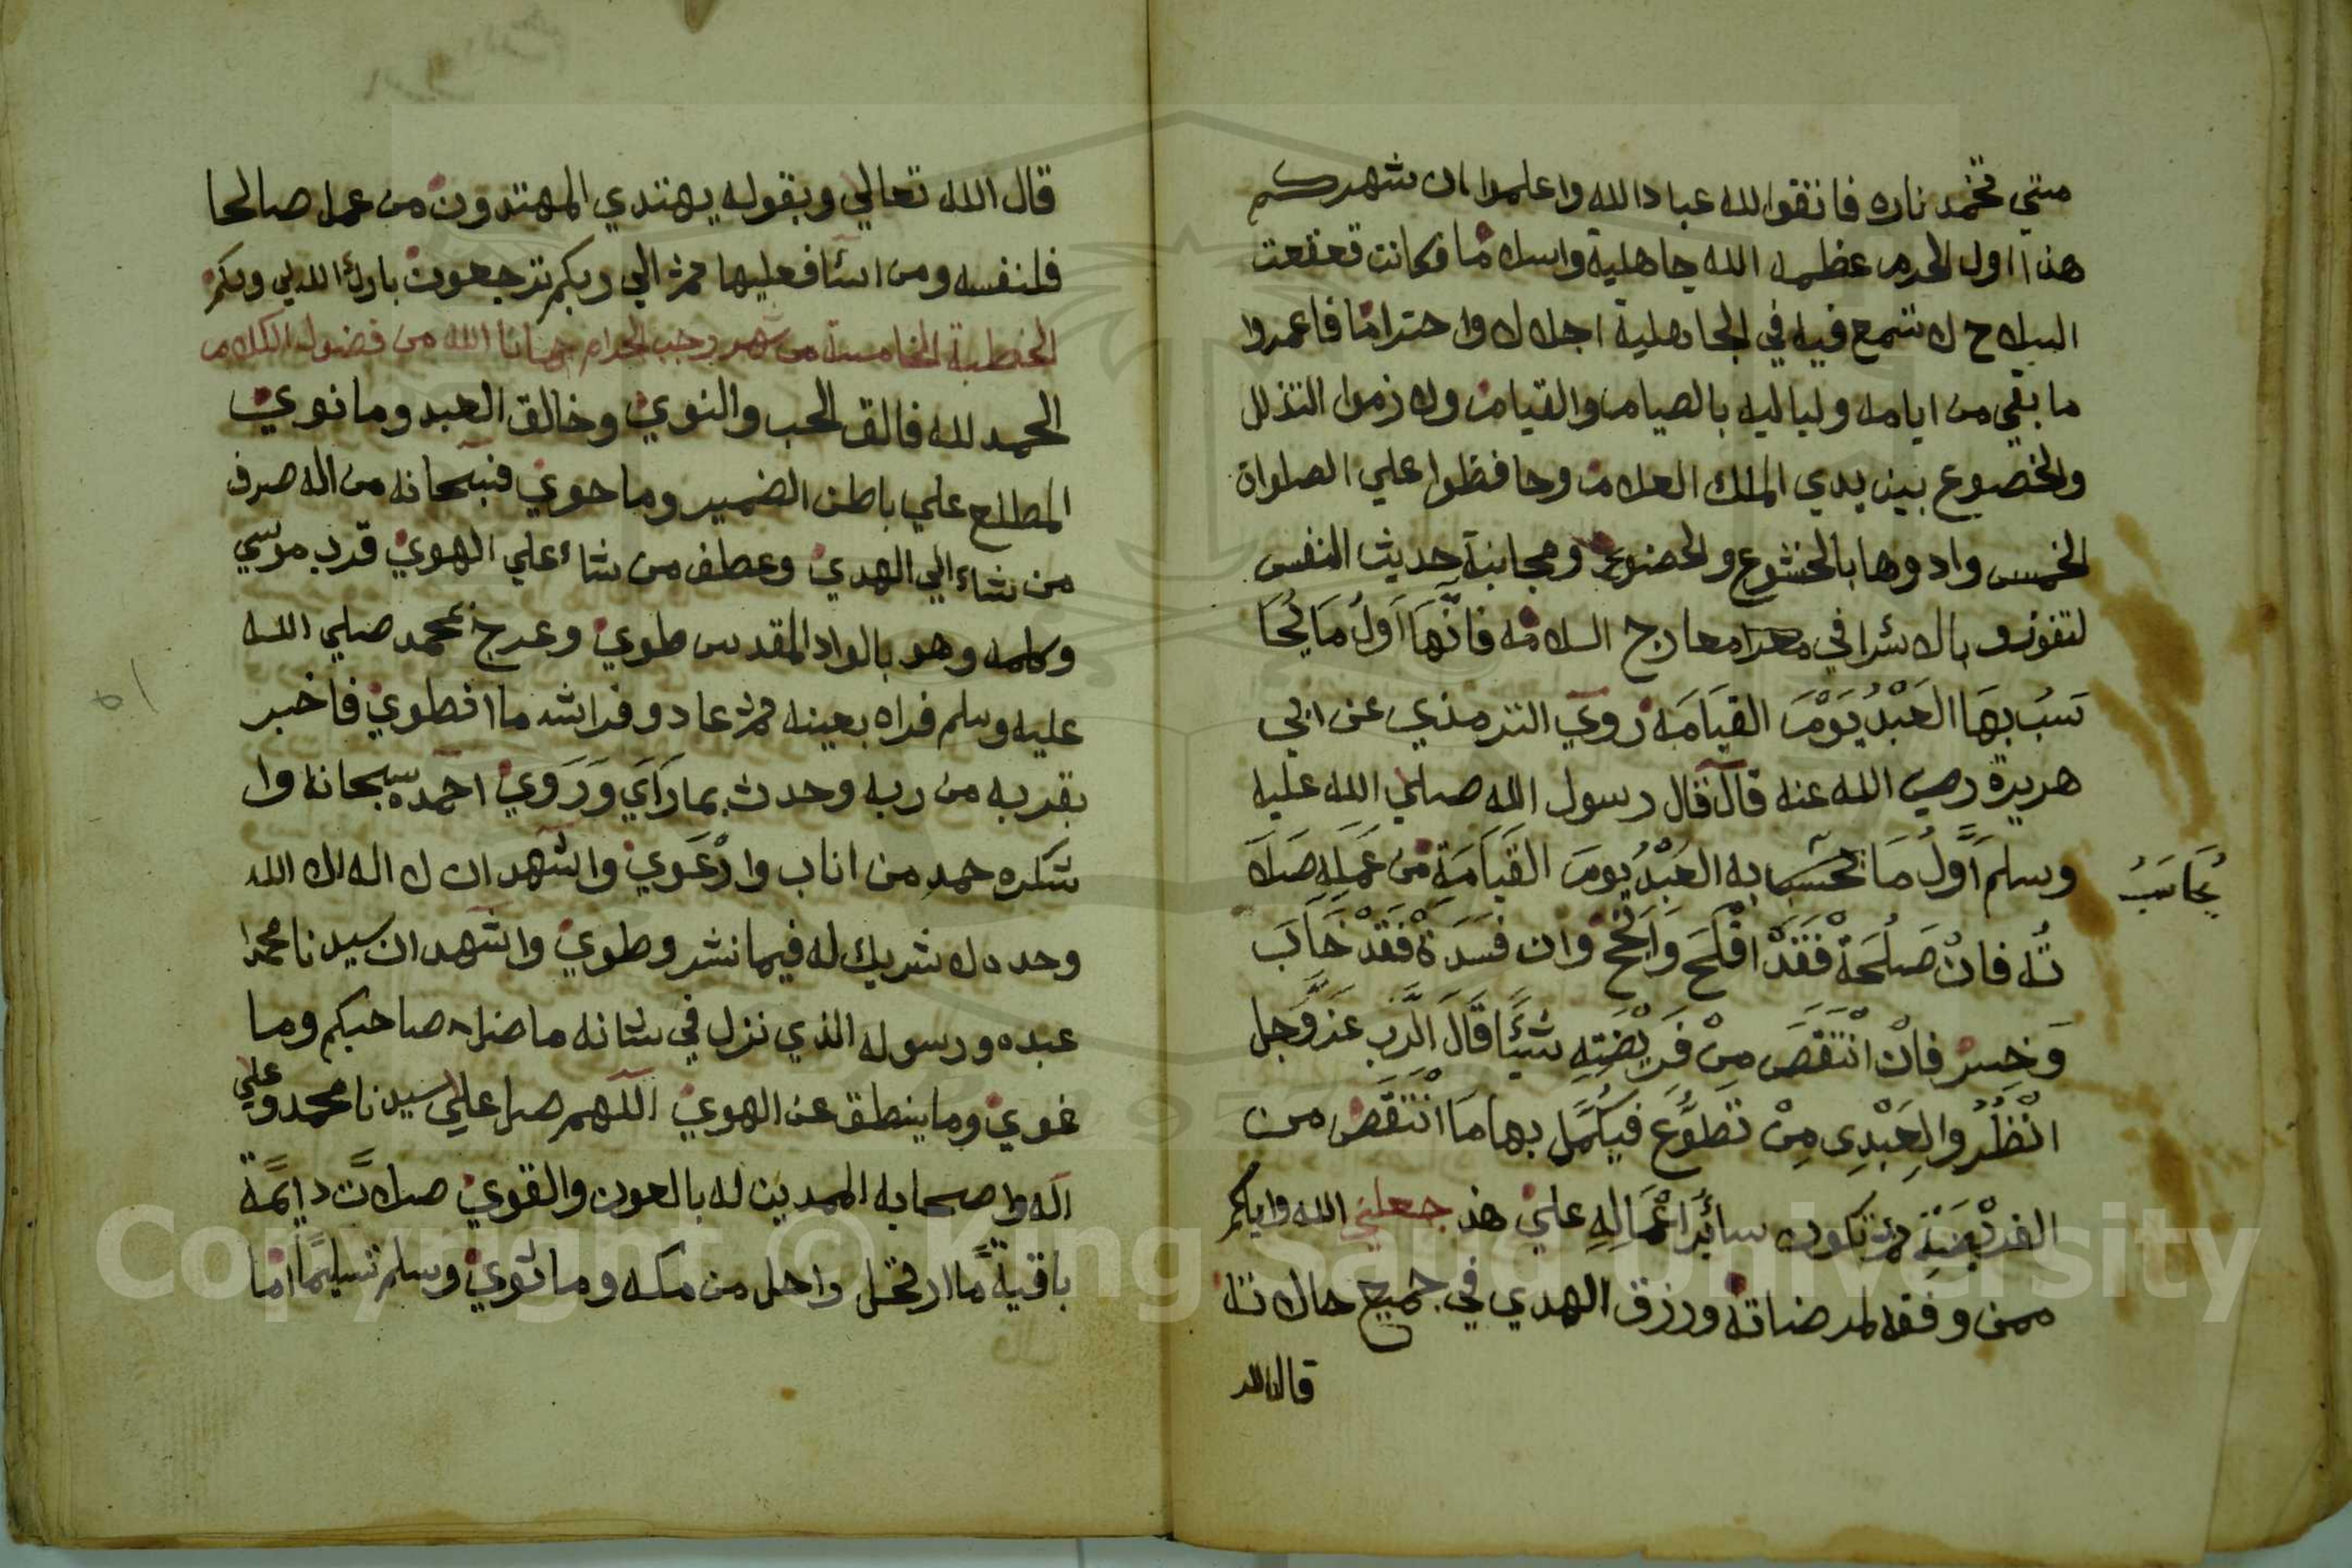 متي تخمد ناره فاتقوا لله عباد الله واعلموا ان شهركم
هذا اول الحرم عظمه الله جاهلية واسلاما فكانت قعقعت
السلاح لا تسمع فيه في الجاهلية اجلالا واحتراما فاعمروا
ما بقي من ايامه ولياليه بالصيام والقيام ولازموا التذلل
والخضوع بين يدي الملك العلام وحافظوا علي الصلوات
الخمس وادوها بالخشوع والخضوع ومجانبة حديث النفس
لتفوزو بالاسرا في معارج السلامه فانها اول ما يحا
سب بها العبد يوم القيامه روي الترمذي عن ابي
هريرة رضي الله عنه قال قال رسول الله صلي الله عليه
وسلم اول ما تحسب به العبد يوم القيامة من عمله صلا
يحاسب
ته فان صلحة فقد افلح وانجح وان فسدة فقد خاب
وخسر فان انتقص من فريضته شيئا قال الرب عز وجل
انظروا لعبدي من تطوع فيكمل بها ما انتقص من
الفريضة ثم تكون سائر اعماله علي هذ جعلني الله واياكم
ممن وفقه لمرضاته ورزق الهدي في جميع حالاته
قال الله
قال الله تعالي وبقوله يهتدي المهتدون من عمل صالحا
فلنفسه ومن اسآ فعليها ثم الي ربكم ترجعون بارك الله لي ولكم
الخطبة الخامسة من شهر رجب الحرام حمانا الله من فضول الكلام
الحمد لله فالق الحب والنوي وخالق العبد وما نوي
المطلع علي باطن الضمير وما حوي فسبحانه من اله صرف
من شاء الي الهدي وعطف من شاء علي الهوي قرب موسي
وكلمه وهو بالواد المقدس طوي وعرج بمحمد صلي الله
عليه وسلم فراه بعينه ثم عاد وفراشه ما انطوي فاخبر
بقربه من ربه وحدث بما رآي وروي احمده سبحانه وا
شكره حمد من اناب وارعوي واشهد ان لا اله الا الله
وحده لا شريك له فيما نشر وطوي واشهد ان سيدنا محمدا
عبده ورسوله الذي نزل في شانه ما ضل صاحبكم وما
غوي وما ينطق عن الهوي اللهم صل علي سيدنا محمد وعلي
اله واصحابه الممدين له بالعون والقوي صلاة دايمة
باقية ما ارتحل راحل من مكه وما ثوي وسلم تسليما اما
Copyright © King Saud University